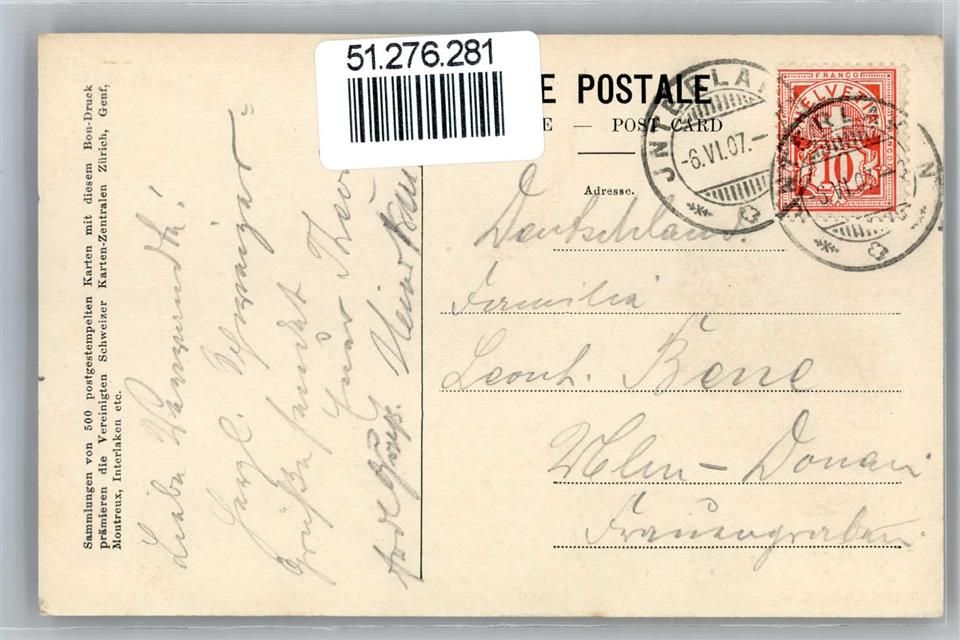 51.276.281
E POSTALE
E — POST CARD
Adresse.
JNTERLA
-6.VI.07.-
FRANCO
HELVETIA
10
Sammlungen von 500 postgestempelten Karten mit diesem Bon-Druck
prämieren die Vereinigten Schweizer Karten-Zentralen Zürich, Genf,
Montreux, Interlaken etc.
Liebe Verwandte!
Herzl.
Grüße sendet
Euer
Deutschland.
Familie
Leonh. Bene
Ulm - Donau
Frauengraben